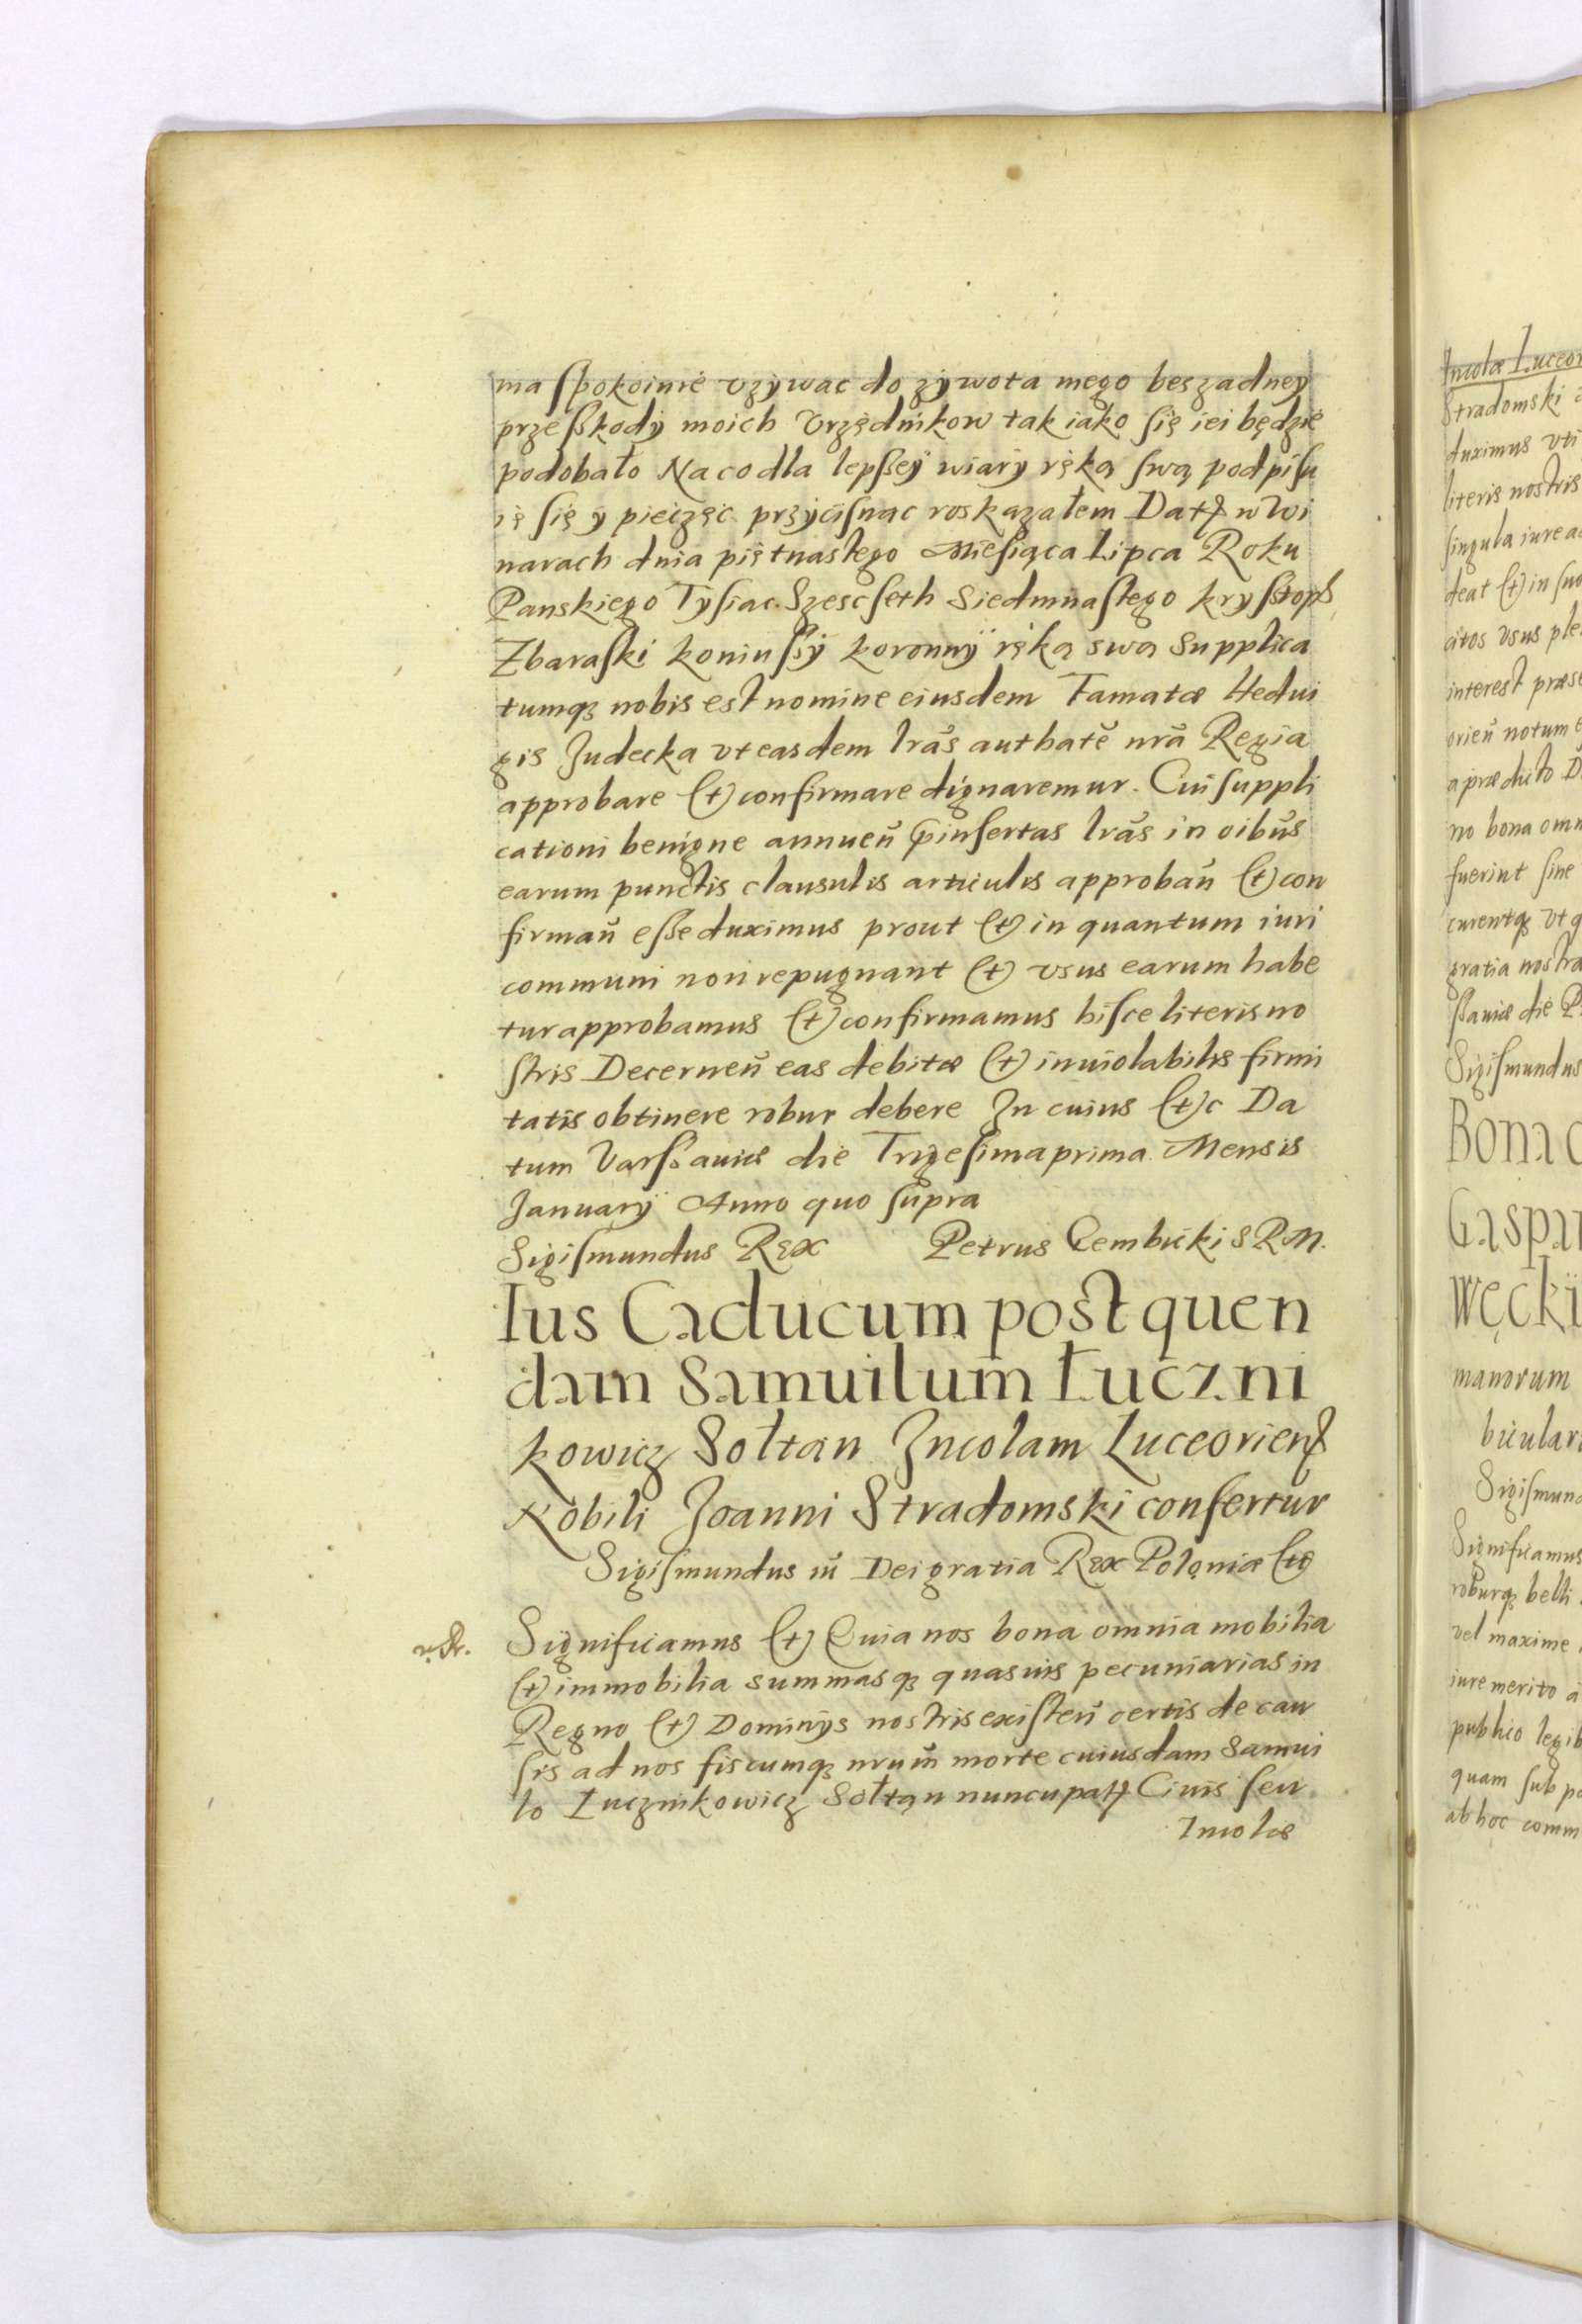 ma spokoinie vzywac do zywota mego bes zadney
przesskody moich Vrzędnikow tak iako się iei będzie
podobało Na co dla lepszey wiary ręką swą podpisu
ię się y pieczęc przycisnac roskazałem Datt w Wi
narach dnia piętnastego Miesiąca Lipca Roku
Panskiego Tysiac Szescseth Siedmnastego Krysstoph
Zbaraski koniuszy koronny ręką swą Supplica
tumq nobis est nomine eiusdem Famatæ Hedui
gis Judecka vt easdem lrãs authatẽ nrã Regia
approbare (et) confirmare dignaremur. Cui suppli
cationi benigne annuen̄ p̄insertas lrãs in oibus
earum punctis clausulis articulis approbañ (et) con
firmañ esse duximus prout (et) in quantum iuri
communi non repugnant (et) vsus earum habe
tur approbamus (et) confirmamus hisce literis no
stris Decerneñ eas debitæ (et) inuiolabilis firmi
tatis obtinere robur debere In cuius (et)c Da
tum Varssauiæ die Trigesima prima Mensis
January Anno quo supra
Sigismundus Rex Petrus Gembicki S R M.
Ius Caducum post quen
dam Samuilum Łuczni
kowicz Sołtan Incolam Luceorien̄
Nobili Joanni Stradomski confertur
Sigismundus iii Dei gratia Rex Poloniæ (etc)
Significamus (et) Quia nos bona omnia mobilia
(et) immobilia summasq quasuis pecuniarias in
Regno (et) Dominys nostris existeñ certis de cau
sis ad nos fiscumq nrum̃ morte cuiusdam Samui
lo Łucznikowicz Sołtan nuncupatt Ciuis seu
Incolæ
Incolæ Luceor
Stradomski
duximus vti
literis nostris
singula iure ac
deat (et) in suo
citos vsus ple
interest præse
orieñ notum
a prædicto D
no bona omn
fuerint sine
curentq vt g
gratia nostra
ssauiæ die P
Sigismundus
Bona c
Gaspar
węckii
manorum
bicular
Sigismund
Significamus
roburq belli
vel maxime
iure merito a
publico legib
quam sub po
ab hoc comm